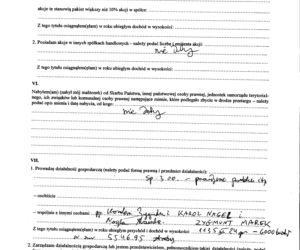 akcje te stanowią pakiet większy niż 10% akcji w spółce:
Z tego tytułu osiągnąłem(ęłam) w roku ubiegłym dochód w wysokości:
2. Posiadam akcje w innych spółkach handlowych – należy podać liczbę i emitenta akcji:
nie dotyczy
Z tego tytułu osiągnąłem(ęłam) w roku ubiegłym dochód w wysokości:
VI.
Nabyłem(am) (nabył mój małżonek) od Skarbu Państwa, innej państwowej osoby prawnej, jednostek samorządu terytorial-
nego, ich związków lub komunalnej osoby prawnej następujące mienie, które podlegało zbyciu w drodze przetargu – należy
podać opis mienia i datę nabycia, od kogo:
nie dotyczy
VII.
1. Prowadzę działalność gospodarczą (należy podać formę prawną i przedmiot działalności):
Sp. z o.o. –
– osobiście
– wspólnie z innymi osobami pp. KAROL NAGEL i
ZYGMUNT MAREK
Z tego tytułu osiągnąłem(ęłam) w roku ubiegłym przychód i dochód w wysokości:
5546.95
2. Zarządzam działalnością gospodarczą lub jestem przedstawicielem, pełnomocnikiem takiej działalności (należy podać